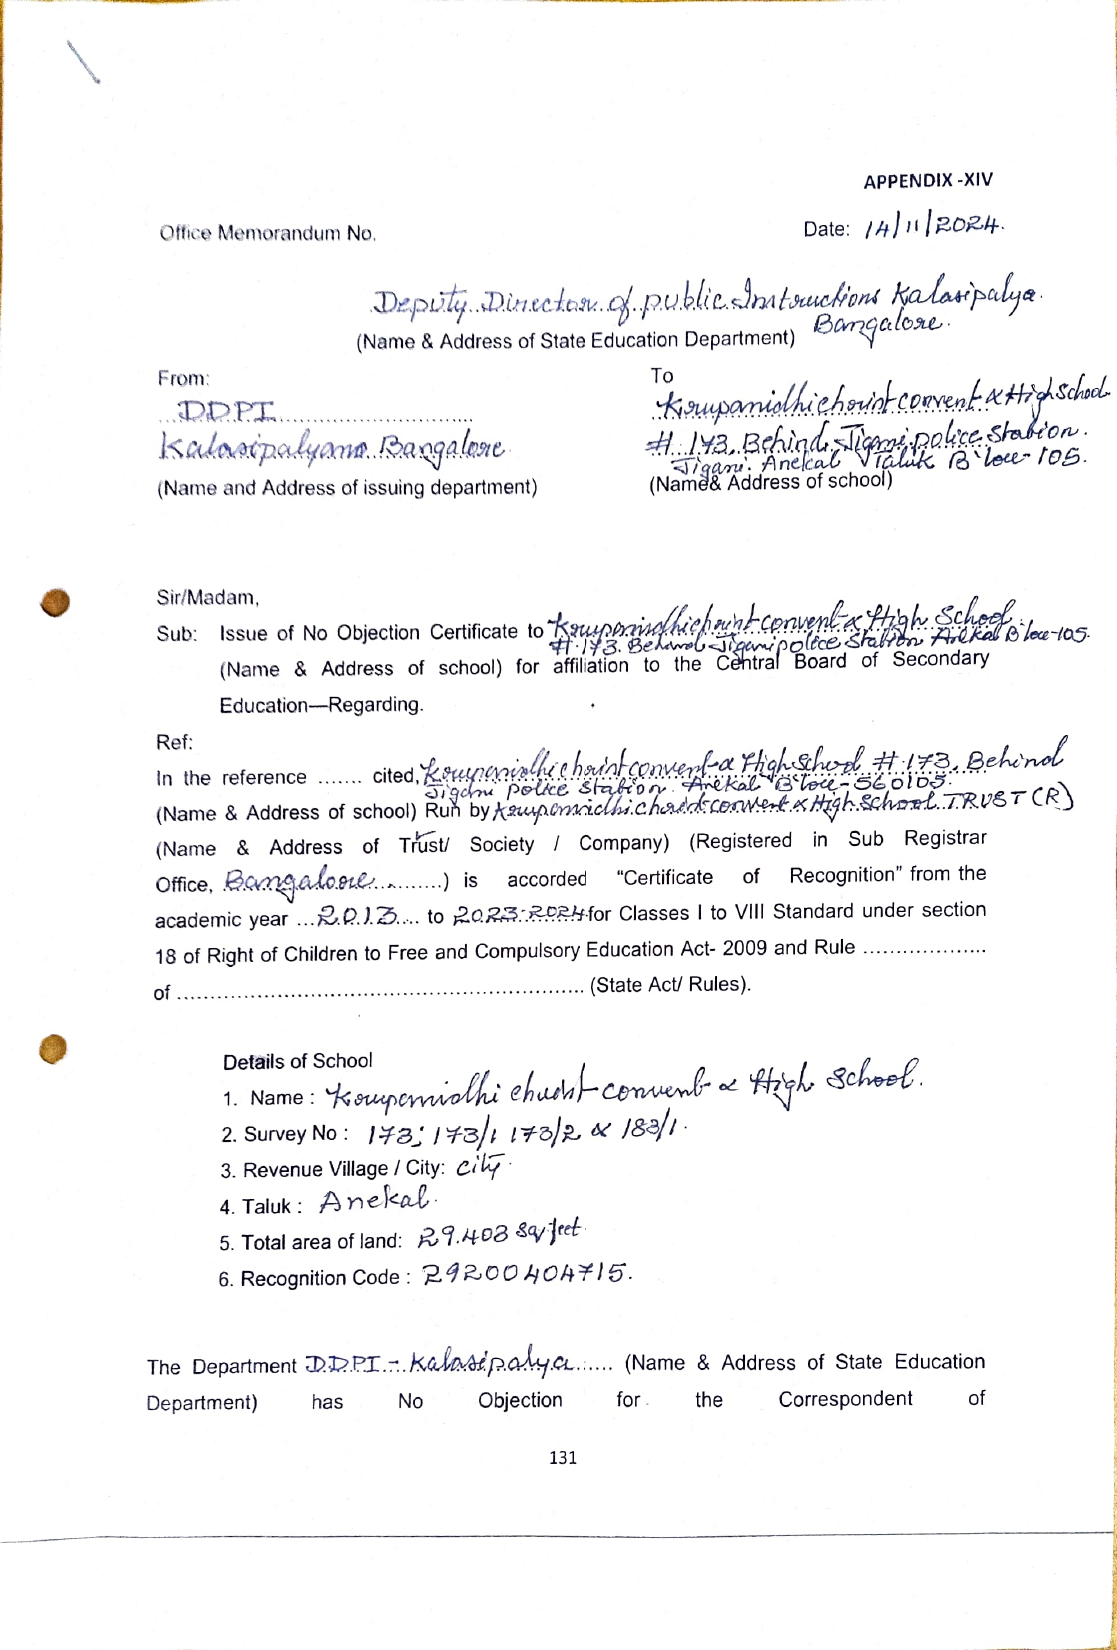 APPENDIX -XIV
Office Memorandum No.
Date: 14/11/2024.
Deputy Director of public Instructions Kalasipalya
Bangalore.
(Name & Address of State Education Department)
From:
To
DDPI
Krupanidhi christ convent & High School
Kalasipalyama Bangalore
# 173, Behind Jigani police Station.
Jigani. Anekal Taluk B'lore-105.
(Name and Address of issuing department)
(Name& Address of school)
Sir/Madam,
Sub: Issue of No Objection Certificate to Krupanidhi christ convent & High School
# 173. Behind Jigani police Station Anekal B'lore-105.
(Name & Address of school) for affiliation to the Central Board of Secondary
Education—Regarding.
Ref:
In the reference ....... cited, Krupanidhi christ convent & High School # 173, Behind
Jigani police Station. Anekal B'lore-560105.
(Name & Address of school) Run by Krupanidhi christ convent & High School TRUST (R)
(Name & Address of Trust/ Society / Company) (Registered in Sub Registrar
Office, Bangalore..........) is accorded “Certificate of Recognition” from the
academic year ...2013.... to 2023-2024 for Classes I to VIII Standard under section
18 of Right of Children to Free and Compulsory Education Act- 2009 and Rule ...................
of .............................................................. (State Act/ Rules).
Details of School
1. Name : Krupanidhi christ convent & High School.
2. Survey No : 173; 173/1 173/2 & 183/1.
3. Revenue Village / City: city
4. Taluk : Anekal.
5. Total area of land: 29.403 Sq/feet
6. Recognition Code : 29200404715.
The Department DDPI - Kalasipalya ...... (Name & Address of State Education
Department) has No Objection for the Correspondent of
131